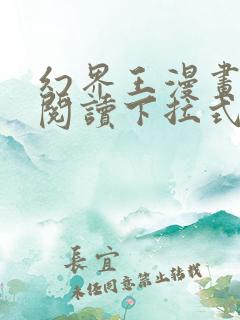 幻界王漫畫
閱讀下拉式
長宜
未經同意禁止轉載